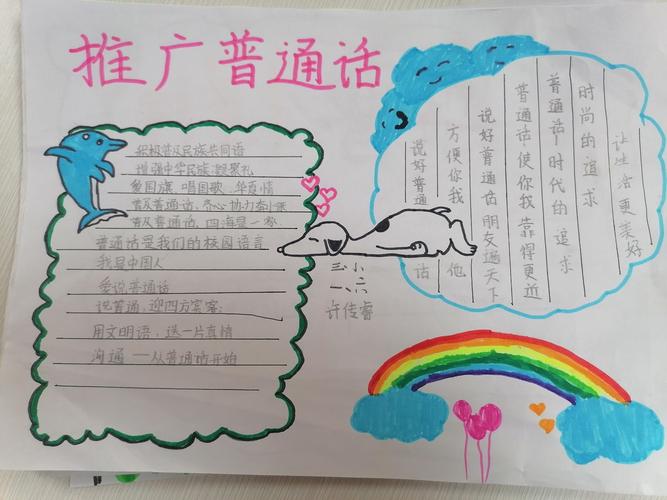 推广普通话
积极普及民族共同语
增强中华民族凝聚礼
爱国旗 唱国歌 华真情
普及普通话,齐心协力奋
普及普通话,四海是一家
普通话是我们的校园语言
我是中国人
爱说普通话
说普通,迎四方宾客;
用文明语,送一片真情
沟通——从普通话开始
三小
一、六
许传睿
让生活更美好
时尚的追求
普通话,时代的追求
普通话,使你我靠得更近
说好普通话 朋友遍天下
方便你我他
说好普通话